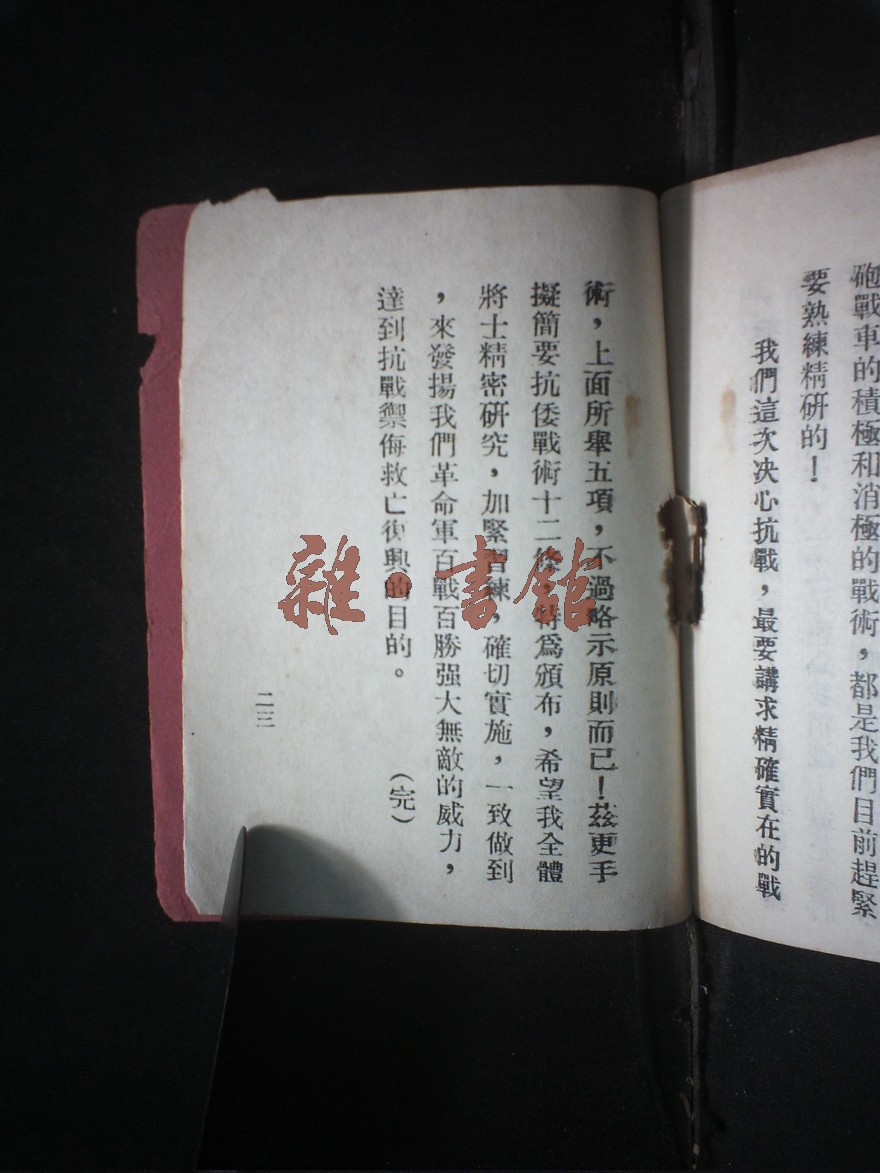 砲戰車的積極和消極的戰術，都是我們目前趕緊
要熟練精研的！
我們這次决心抗戰，最要講求精確實在的戰
術，上面所舉五項，不過略示原則而已！茲更手
擬簡要抗倭戰術十二條，特爲頒布，希望我全體
將士精密研究，加緊習練，確切實施，一致做到
，來發揚我們革命軍百戰百勝强大無敵的威力，
達到抗戰禦侮救亡復興的目的。
（完）
二三
雜·書館